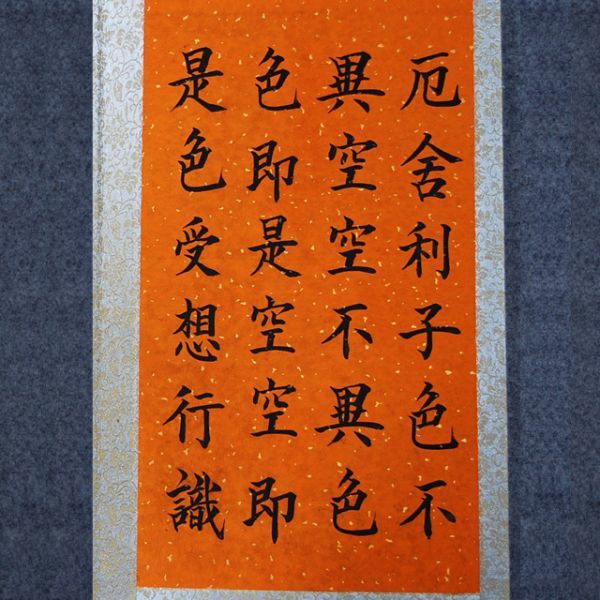 厄舍利子色不
異空空不異色
色即是空空即
是色受想行識